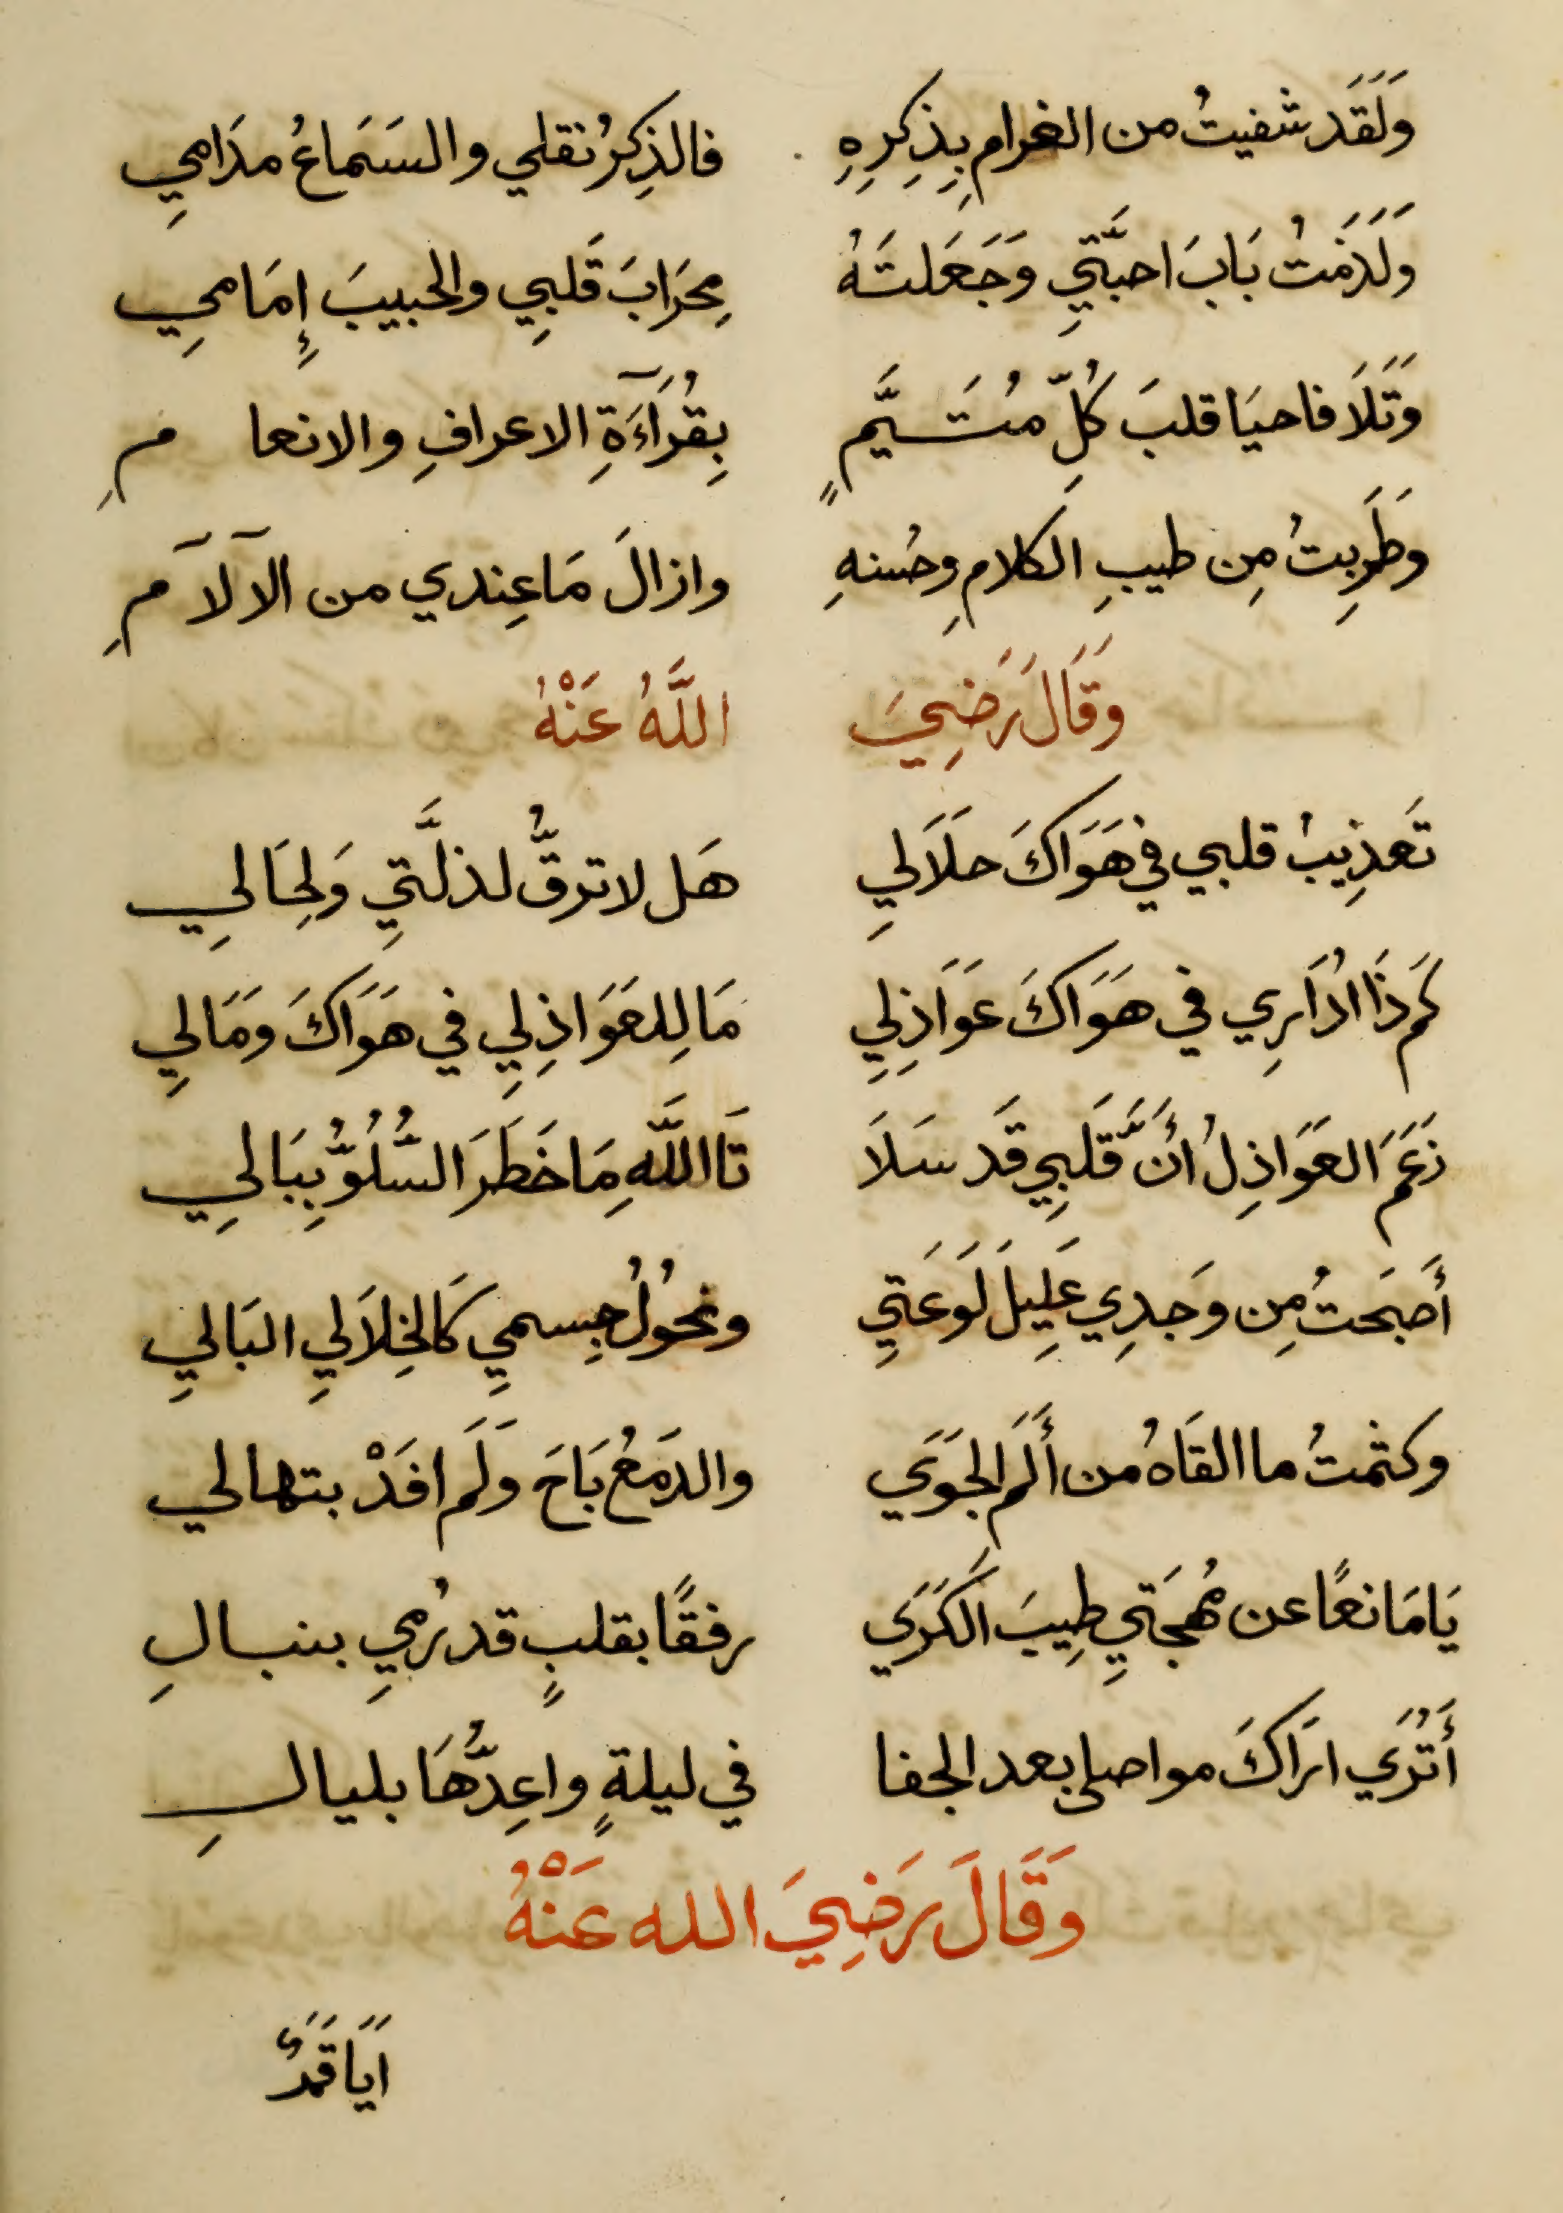 وَلَقَد شفيتُ من الغرام بِذِكِرِهِ فالذِكِرُ نقلي والسَمَاعُ مدَامِي
وَلَزَمتُ بَابَ احبَّتِي وَجَعَلتَهُ مِحَرَابَ قَلبِي والحبيبَ إِمَامِي
وَتَلَا فاحيَا قلبَ كُلِّ متَيَّمٍ بِقُرَآءَةِ الاعرافِ والانعامِ
وطَرِبتُ مِن طيبِ الكلامِ وحُسنهِ وازالَ مَا عِندي من الآلآمِ
وَقَالَ رَضِيَ اللَّهُ عَنْهُ
تَعذِيبُ قلبي في هَوَاكَ حلَالِي هَل لا ترقُّ لذلَّتِي وَلِحَالِي
كَم ذَا ادُاَرِي في هَوَاكَ عَوَاَذِلِي مَا لِلعَوَاذِلِي في هَوَاكَ وَمَالِي
زَعَمَ العَوَاذِلُ أنَّ قَلبِي قَد سَلَا تَا اللَّهِ مَا خَطَرَ السُّلُوُّ بِبَالِي
أَصبَحتُ مِن وَجدِي عَلِيلَ لَوعَتِي ونحُوُلُ جِسمِي كَالخِلَالِي البَالِي
وكتمتُ ما القَاهُ من أَلَم الجَوَي والدَمعُ بَاحَ وَلَم افَدْ بتهالي
يَا مَانعًا عن مُهجَتِي طِيبَ الكَرَي رفقًا بقلبٍ قد رُمِي بنبالِ
أَتُرَي ارَاكَ مواصلي بعد الجفا في ليلةٍ واعِدُّهَا بليالِ
وَقَالَ رَضِيَ الله عَنْهُ
اَيَا قَمَرٌ